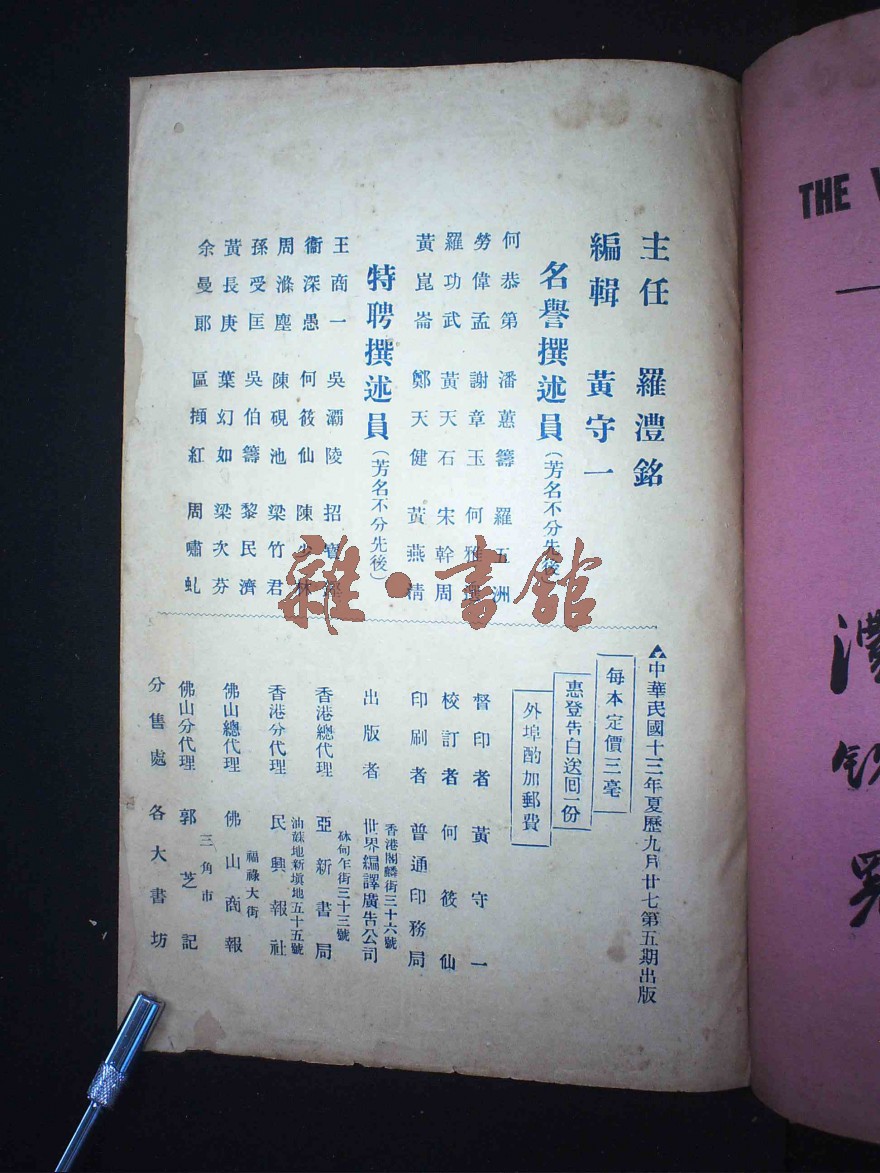 主任　羅澧銘
編輯　黃守一
名譽撰述員（芳名不分先後）
何恭第　潘蕙籌　羅五洲
勞偉孟　謝章玉　何雅選
羅功武　黃天石　宋幹周
黃崑崙　鄭天健　黃燕清
特聘撰述員（芳名不分先後）
王商一　吳灞陵　招
衞深愚　何筱仙　陳少林
周滌塵　陳硯池　梁竹君
孫受匡　吳伯籌　黎民濟
黃長庚　葉幻如　梁次芬
余曼郎　區擷紅　周嘯虬
▲中華民國十三年夏歷九月廿七第五期出版
每本定價三毫
惠登告白送回一份
外埠酌加郵費
督印者　黃守一
校訂者　何筱仙
印刷者　普通印務局
香港閣麟街三十六號
出版者　世界編譯廣告公司
砵甸乍街三十三號
香港總代理　亞新書局
油蔴地新填地五十五號
香港分代理　民興報社
福祿大街
佛山總代理　佛山商報
三角市
佛山分代理　郭芝記
分售處　各大書坊
雜·書館
THE